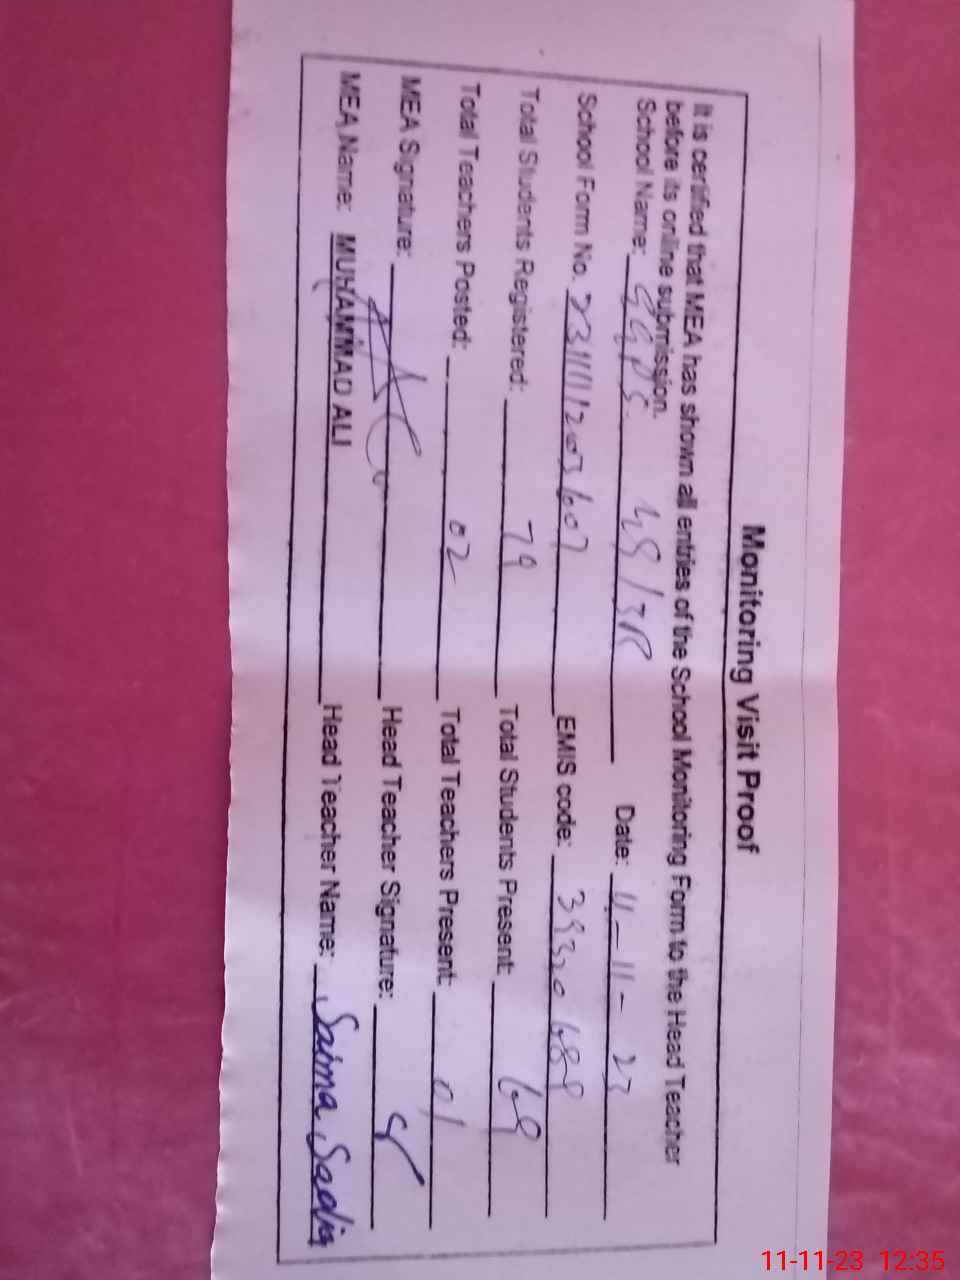 Monitoring Visit Proof
It is certified that MEA has shown all entries of the School Monitoring Form to the Head Teacher
before its online submission.
School Name: GGPS 49/3R Date: 11-11-23
School Form No. 2311111203607 EMIS code: 39320688
Total Students Registered: 79 Total Students Present: 69
Total Teachers Posted: 02 Total Teachers Present: 01
MEA Signature: Head Teacher Signature:
MEA Name: MUHAMMAD ALI Head Teacher Name: Saima Sadiq
11-11-23 12:35